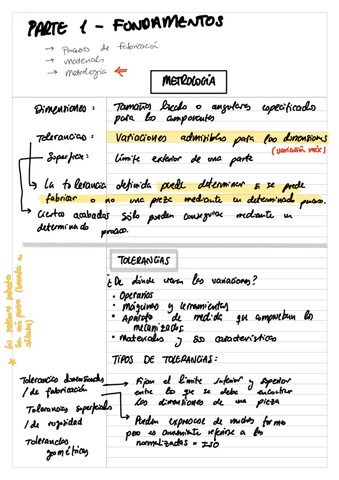 PARTE 1 - FUNDAMENTOS
→ Procesos de fabricación
→ materiales
→ metrología
METROLOGÍA
Dimensiones:
Tamaños lineales o angulares especificados
para los componentes
Tolerancias:
Variaciones admisibles para las dimensiones
(variación máx)
Superficie:
Límite exterior de una parte
La tolerancia definida puede determinar si se puede
fabricar o no una pieza mediante un determinado proceso.
Ciertos acabados sólo pueden conseguirse mediante un
determinado proceso.
TOLERANCIAS
¿De dónde vienen las variaciones?
• Operarios
• Máquinas y herramientas
• Aparatos de medida que comprueban los
mecanizados
• Materiales y sus características
TIPOS DE TOLERANCIAS:
Tolerancias dimensionales
/ de fabricación
Fijan el límite inferior y superior
entre los que se debe encontrar
las dimensiones de una pieza
Tolerancias superficiales
/ de rugosidad
Pueden expresarse de muchas formas
pero es conveniente referirse a las
normalizadas = ISO
Tolerancias
geométricas